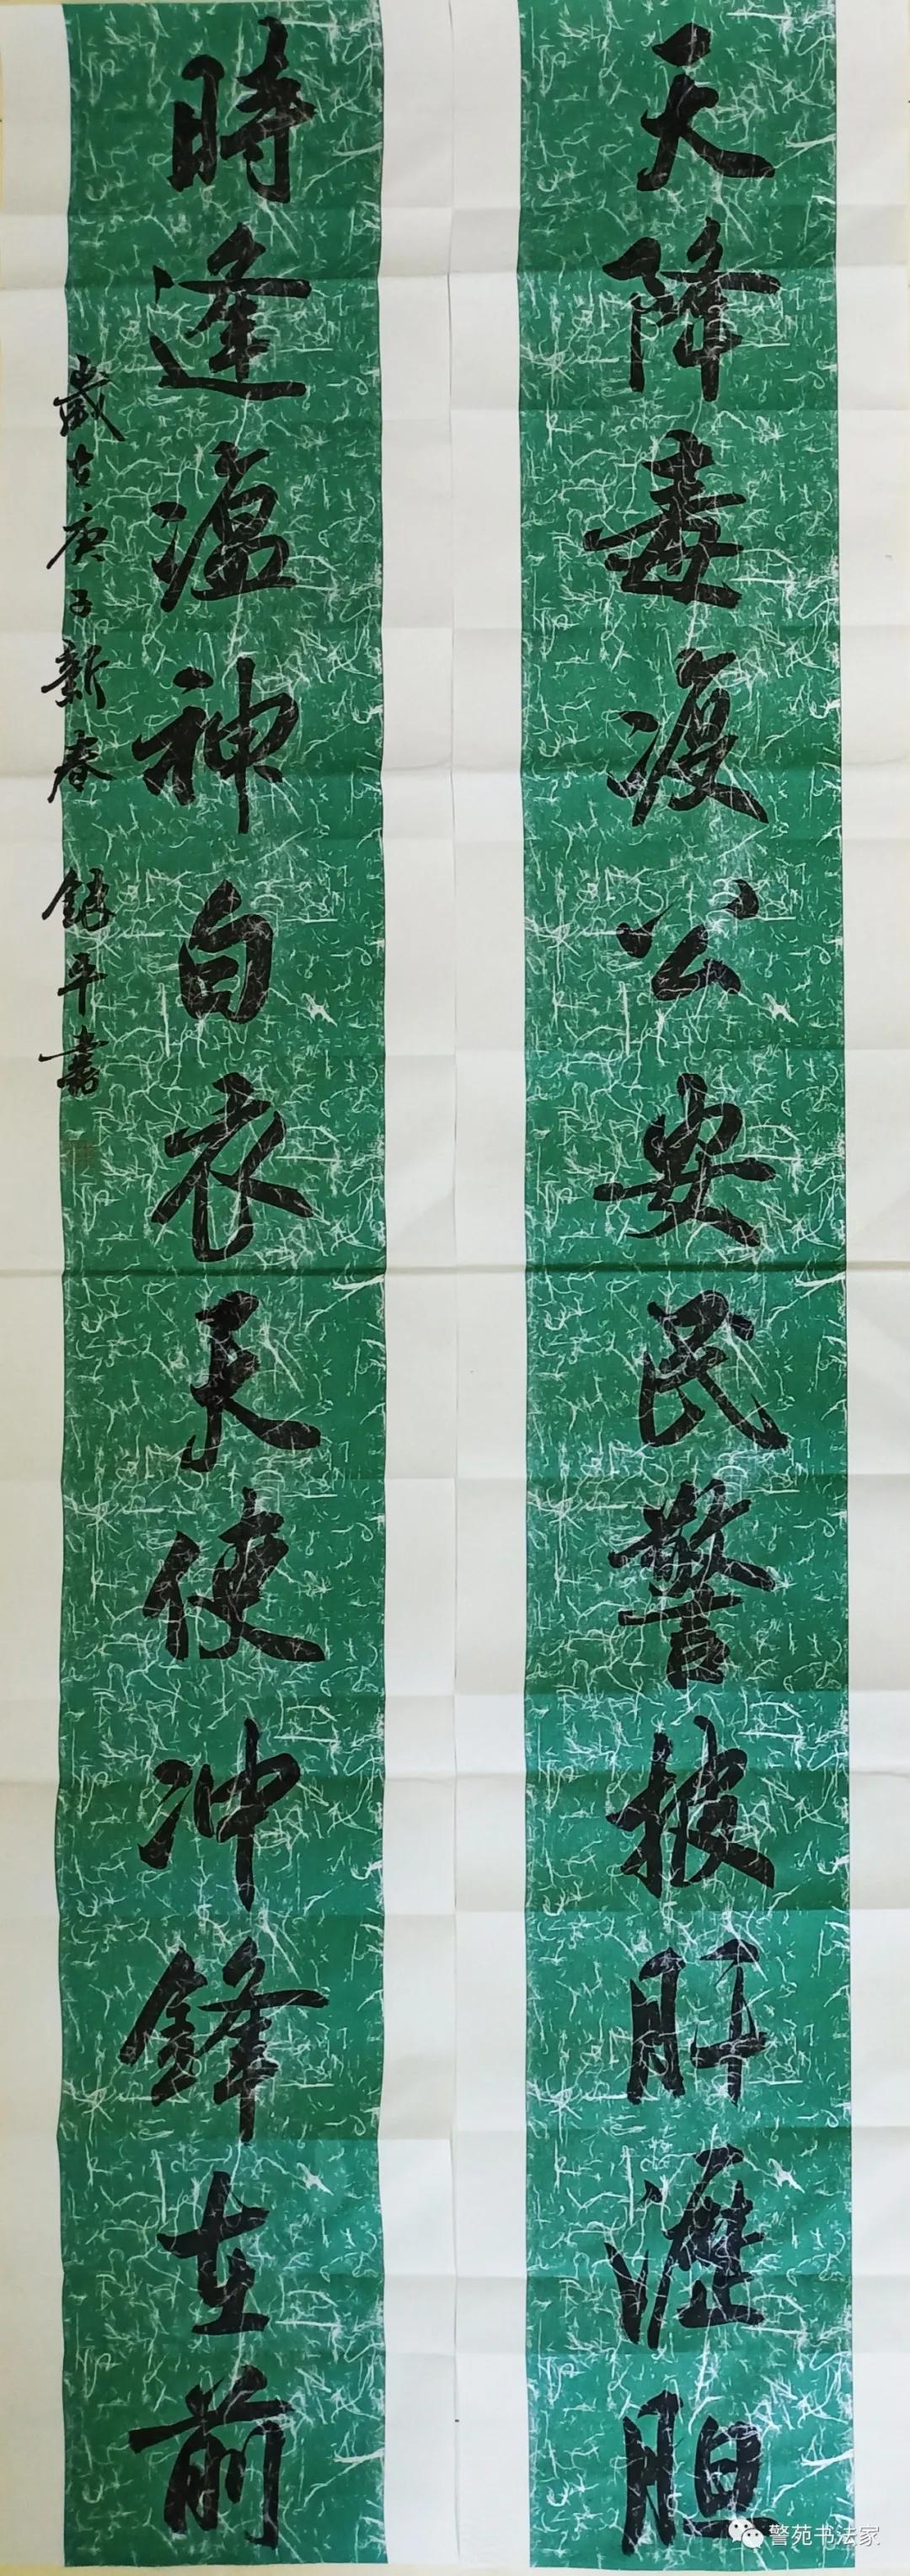 天降毒疫公安民警披肝瀝胆
時逢瘟神白衣天使冲鋒在前
歲在庚子新春 平書
警苑书法家